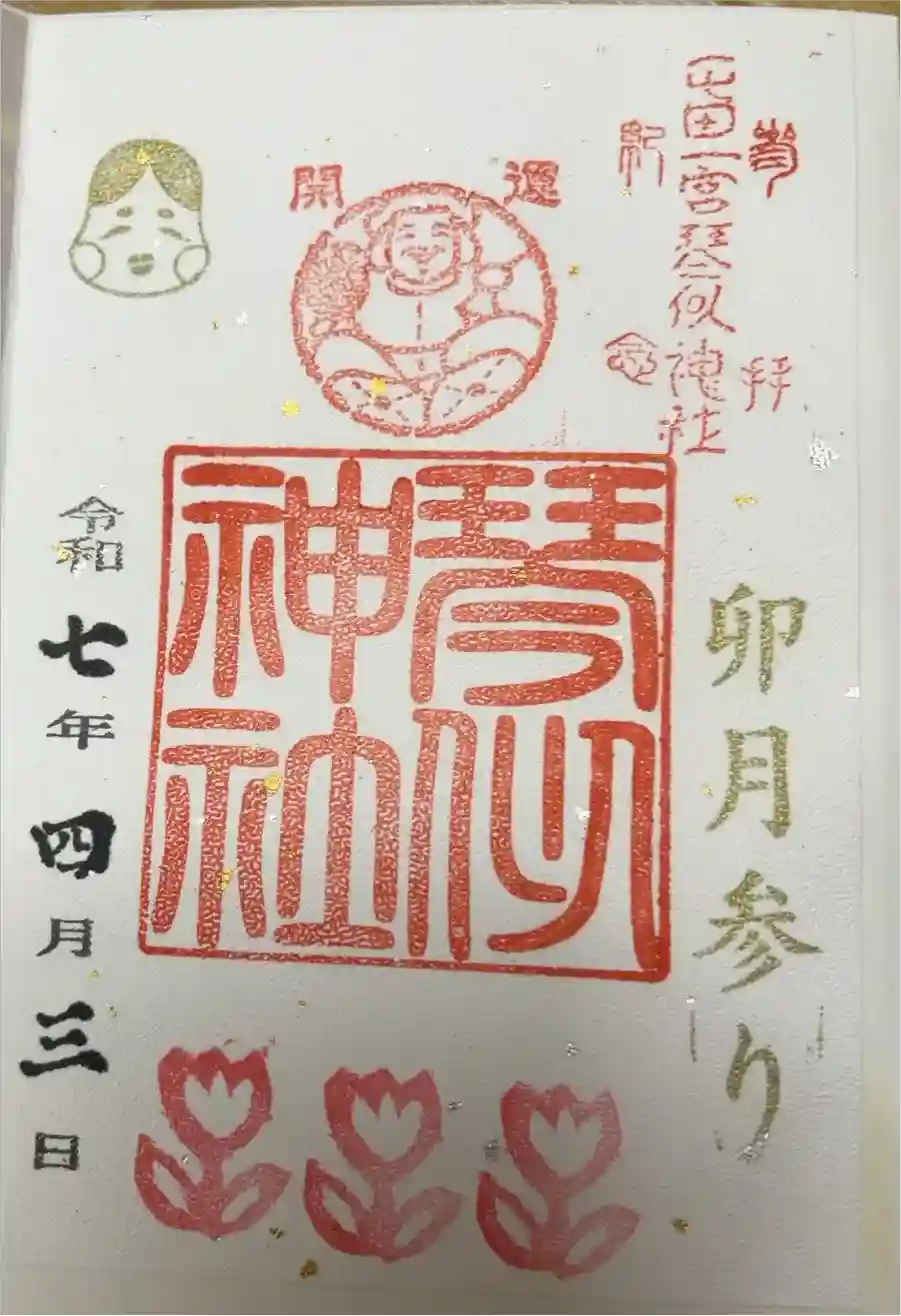 参拝
屯田一宮琴似神社
紀念
卯月参り
開運
琴似
神社
令和七年四月三日